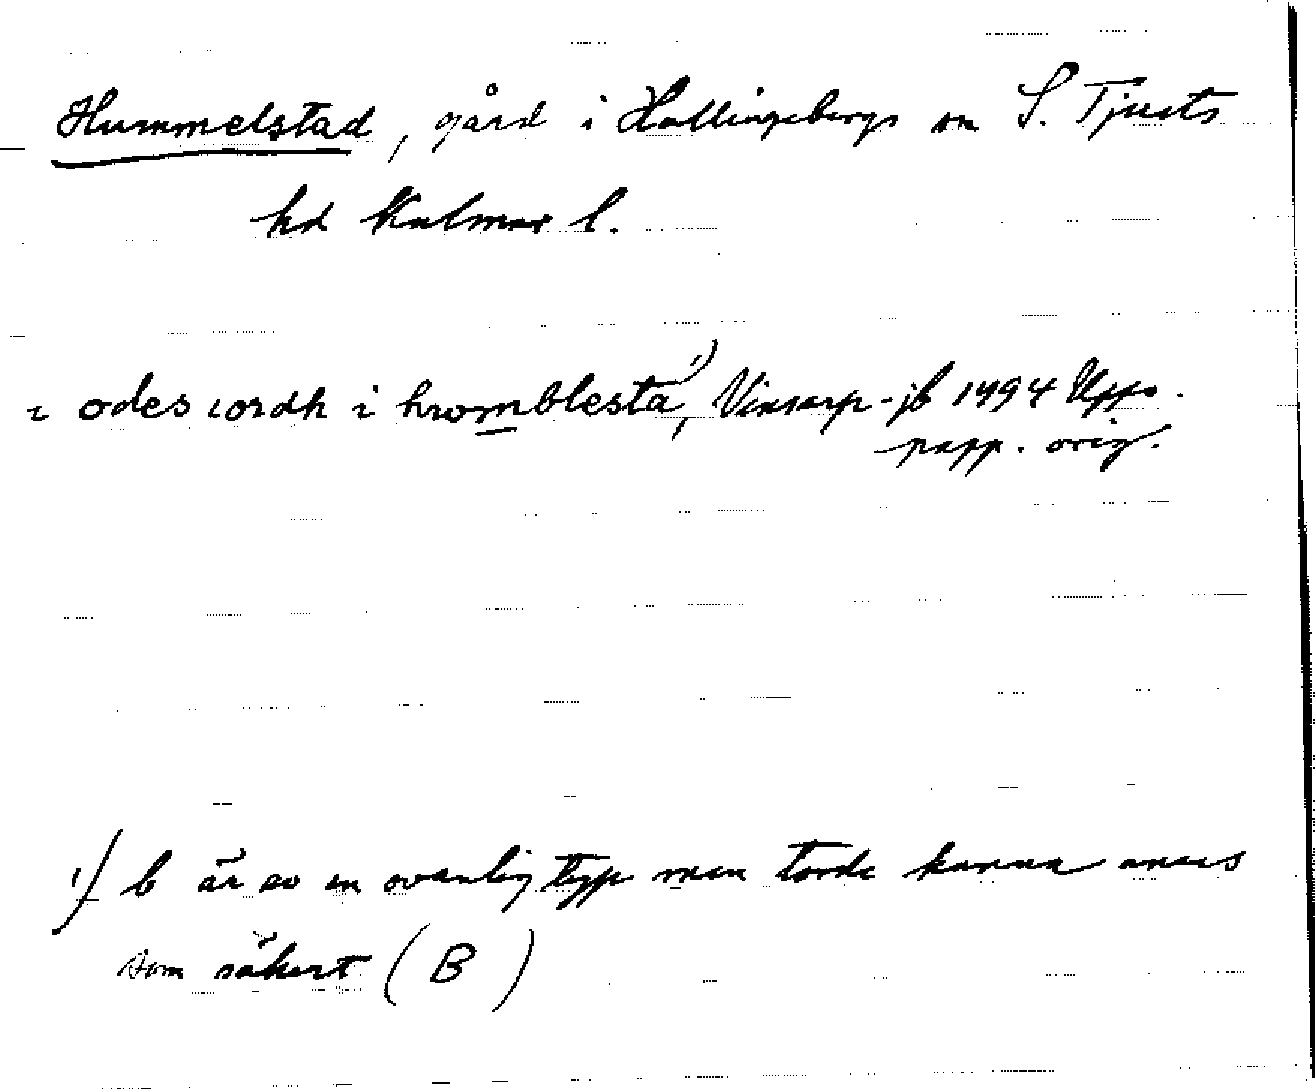 Hummelstad, gård i Hallingebergs sn S. Tjusts
hd Kalmar l.
i odes iordh i hromblesta¹⁾, Vinsarp-jb 1494 Upps.
papp. orig.
¹⁾ b är av en ovanlig typ men torde kunna anses
som säkert (B)